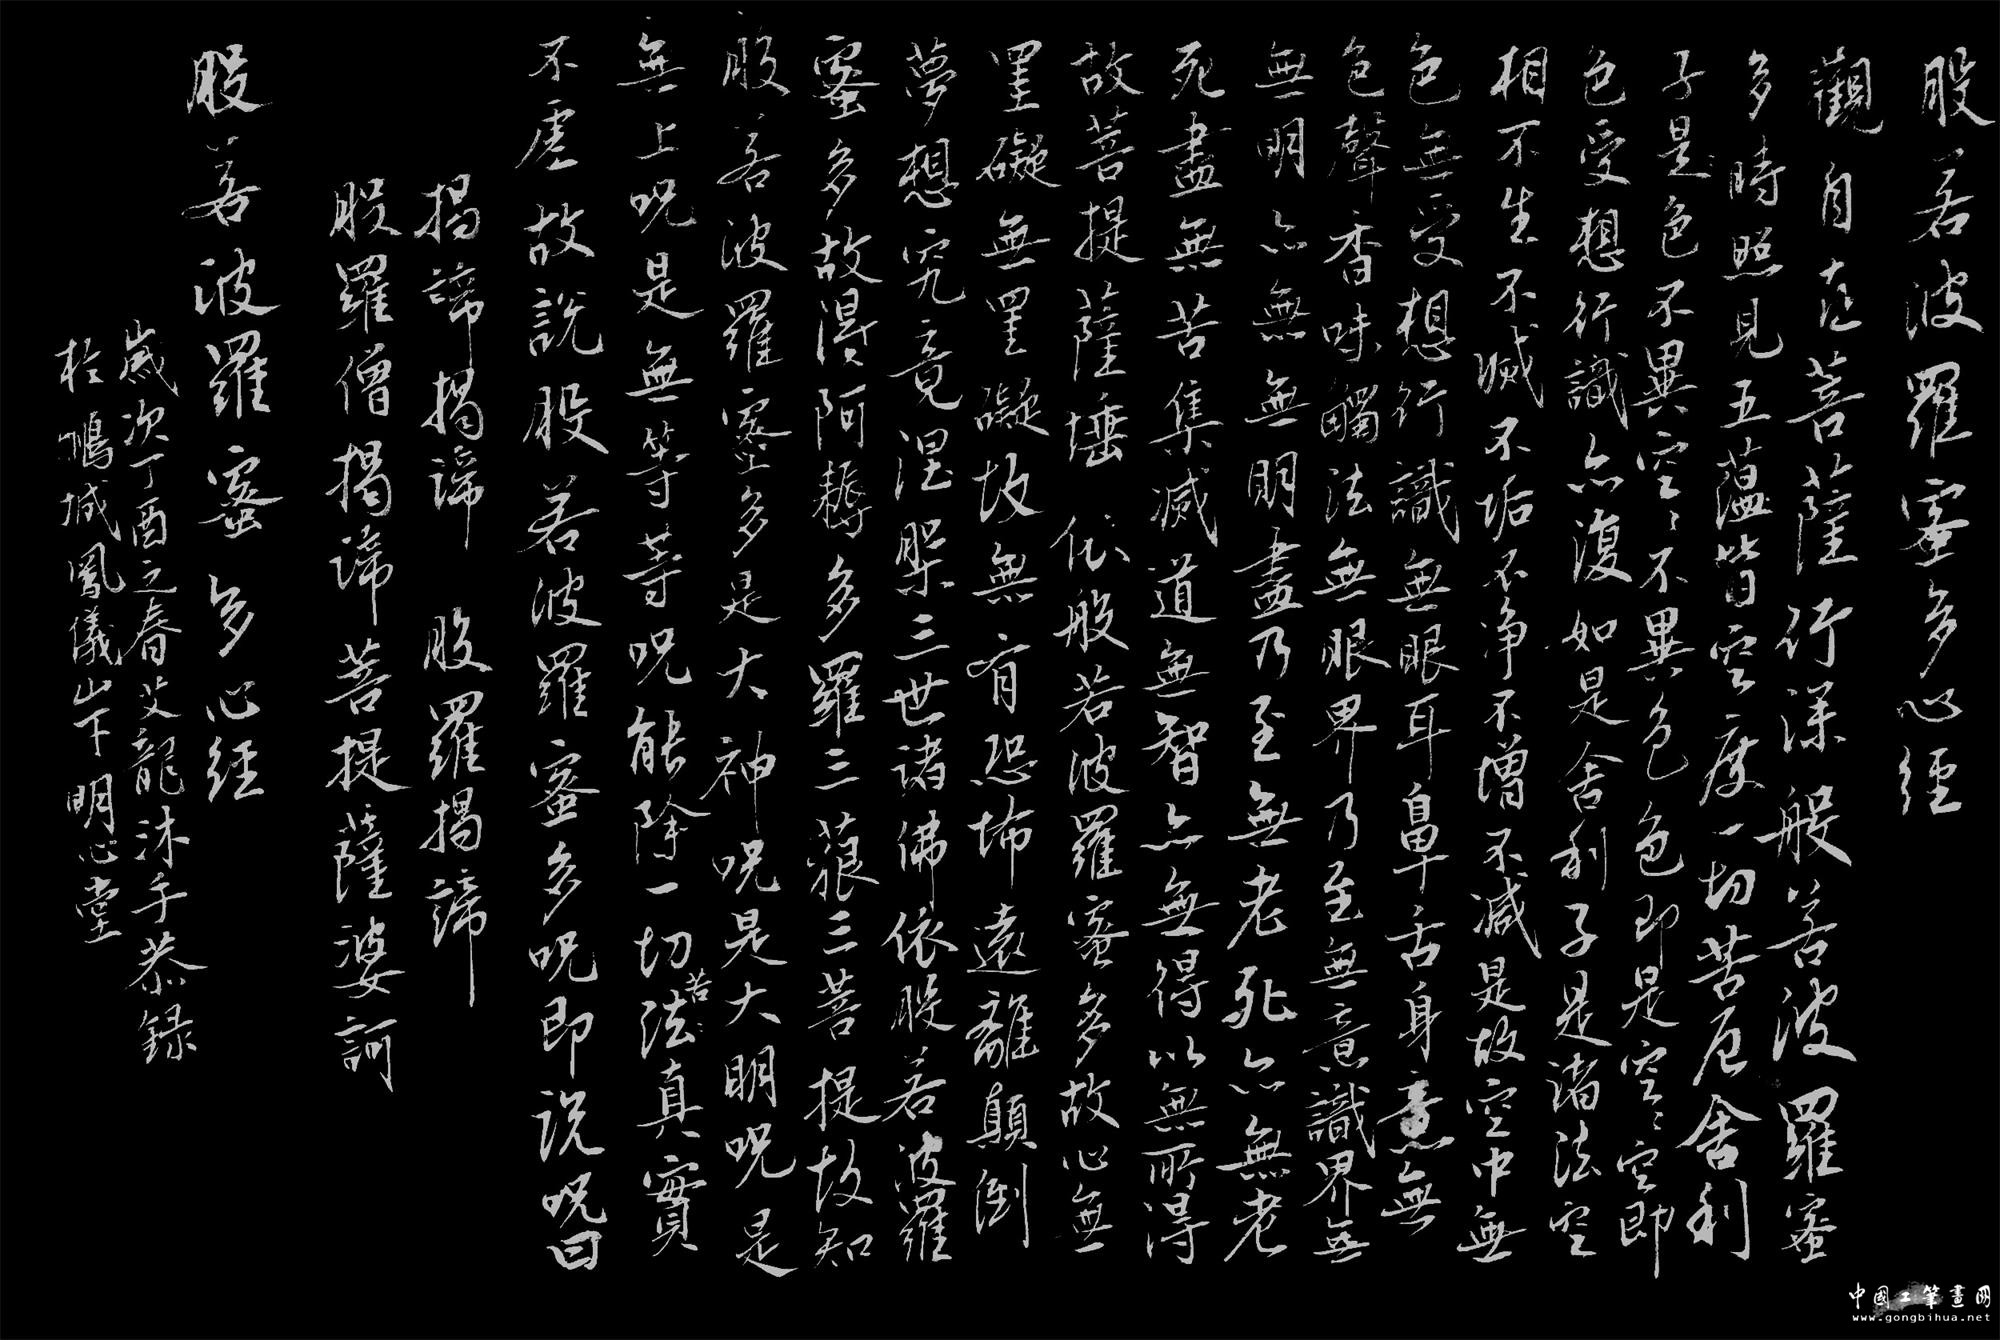 般若波羅蜜多心經
觀自在菩薩行深般若波羅蜜
多時照見五蘊皆空度一切苦厄舍利
子是色不異空空不異色色即是空空即
色受想行識亦復如是舍利子是諸法空
相不生不滅不垢不净不增不減是故空中無
色無受想行識無眼耳鼻舌身意無
色聲香味觸法無眼界乃至無意識界無
無明亦無無明盡乃至無老死亦無老
死盡無苦集滅道無智亦無得以無所得
故菩提薩埵依般若波羅蜜多故心無
罣礙無罣礙故無有恐怖遠離顛倒
夢想究竟涅槃三世諸佛依般若波羅
蜜多故得阿耨多羅三藐三菩提故知
般若波羅蜜多是大神咒是大明咒是
無上咒是無等等咒能除一切苦法真實
不虛故說般若波羅蜜多咒即说咒曰
揭諦揭諦 般羅揭諦
般羅僧揭諦菩提薩婆訶
般若波羅蜜多心经
歲次丁酉之春艾龍沐手恭録
於鵬城鳳儀山下明心堂
中國工筆畫网
www.gongbihua.net